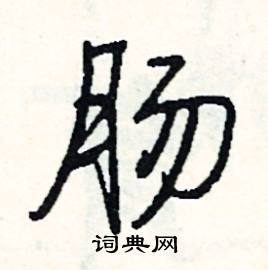 肠
词典网